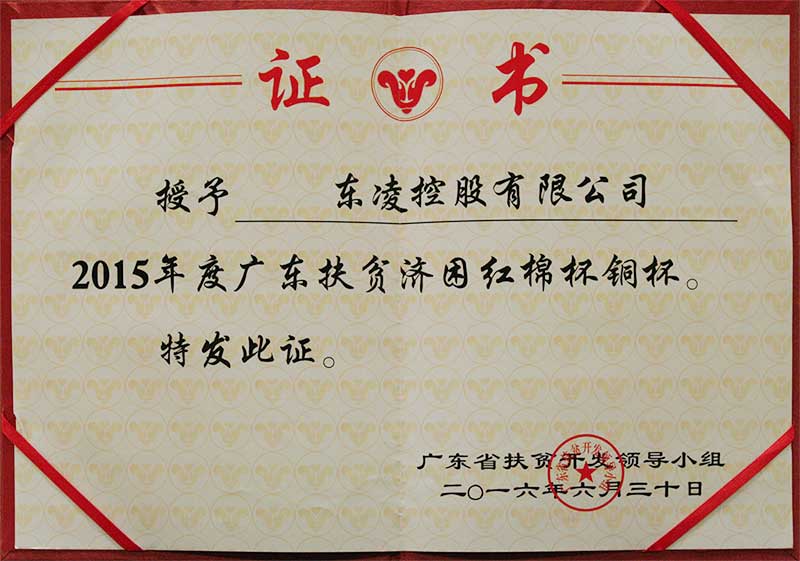 证书
授予 东凌控股有限公司
2015年度广东扶贫济困红棉杯铜杯。
特发此证。
广东省扶贫开发领导小组
二〇一六年六月三十日